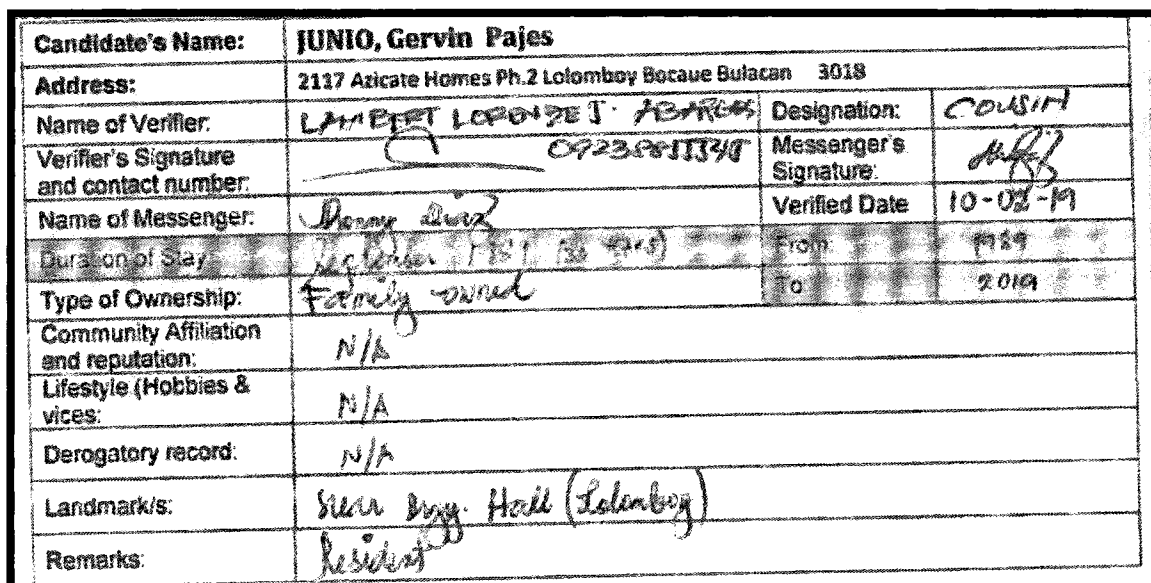 Candidate's Name: JUNIO, Gervin Pajes
Address: 2117 Azicate Homes Ph.2 Lolomboy Bocaue Bulacan 3018
Name of Verifier: LAMBERT J. Designation: COUSIN
Verifier's Signature and contact number: Messenger's Signature:
Name of Messenger: Diaz Verified Date 10-02-19
Duration of Stay September From: 1989
Type of Ownership: Family-owned To 2019
Community Affiliation and reputation: N/A
Lifestyle (Hobbies & vices: N/A
Derogatory record: N/A
Landmark/s: near Brgy. Hall (Lolomboy)
Remarks: Resident